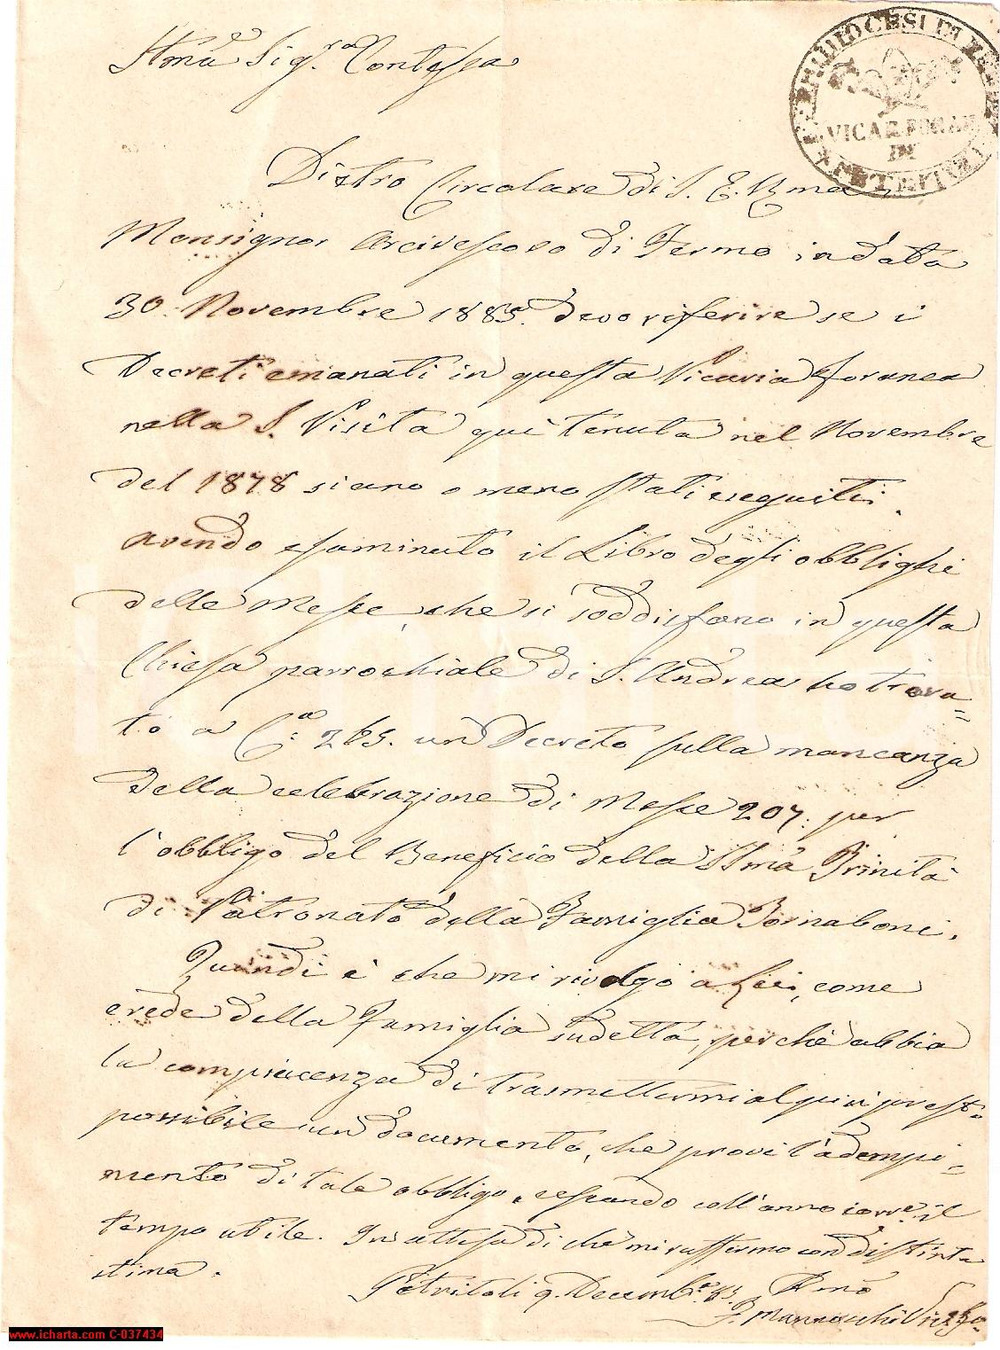 Ill.ma Sig.ra Contessa
ARCHIDIOCESI DI FERMO
VICAR FORAN
IN
PETRITOLI
Dietro Circolare di S. E. R.ma
Monsignor Arcivescovo di Fermo in data
30. Novembre 1883. devo riferire se i
Decreti emanati in questa Vicaria foranea
nella S. Visita qui tenuta nel Novembre
del 1878 siano o meno stati eseguiti.
avendo esaminato il Libro degli obblighi
delle Messe, che si soddisfano in questa
Chiesa parrochiale di S. Andrea ho trova=
to a C.a un Decreto sulla mancanza
della celebrazione di Messe 207. per
l'obbligo del Beneficio della SSma Trinità
di Patronato della Famiglia Fornaboni.
Quindi è che mi rivolgo a Lei, come
erede della Famiglia sudetta, perchè abbia
la compiacenza di trasmettermi al più presto
possibile un documento, che provi l'adempi=
mento di tale obbligo, cessando coll'anno corr.e il
tempo utile. In attesa di che mi raffermo con distinta
stima.
Petritoli 9. Decemb.e 83
www.icharta.com C-037434